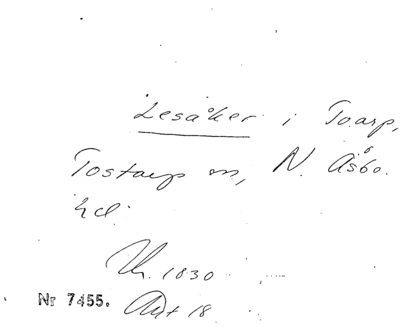 Lesåker i Toarp,
Tostarp sn, N. Åsbo.
hd.
1830
Nr 7455. Akt 18